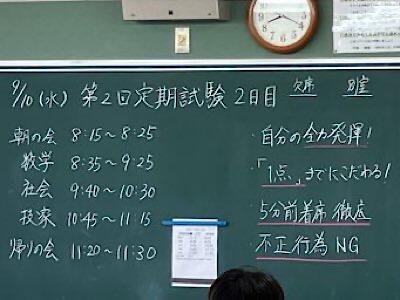 9/10(水) 第2回定期試験 2日目 欠席 別室
朝の会 8:15～8:25
数学 8:35～9:25
社会 9:40～10:30
技家 10:45～11:15
帰りの会 11:20～11:30
・自分の全力発揮!
・「1点」までにこだわる!
・5分前着席 徹底
・不正行為 NG